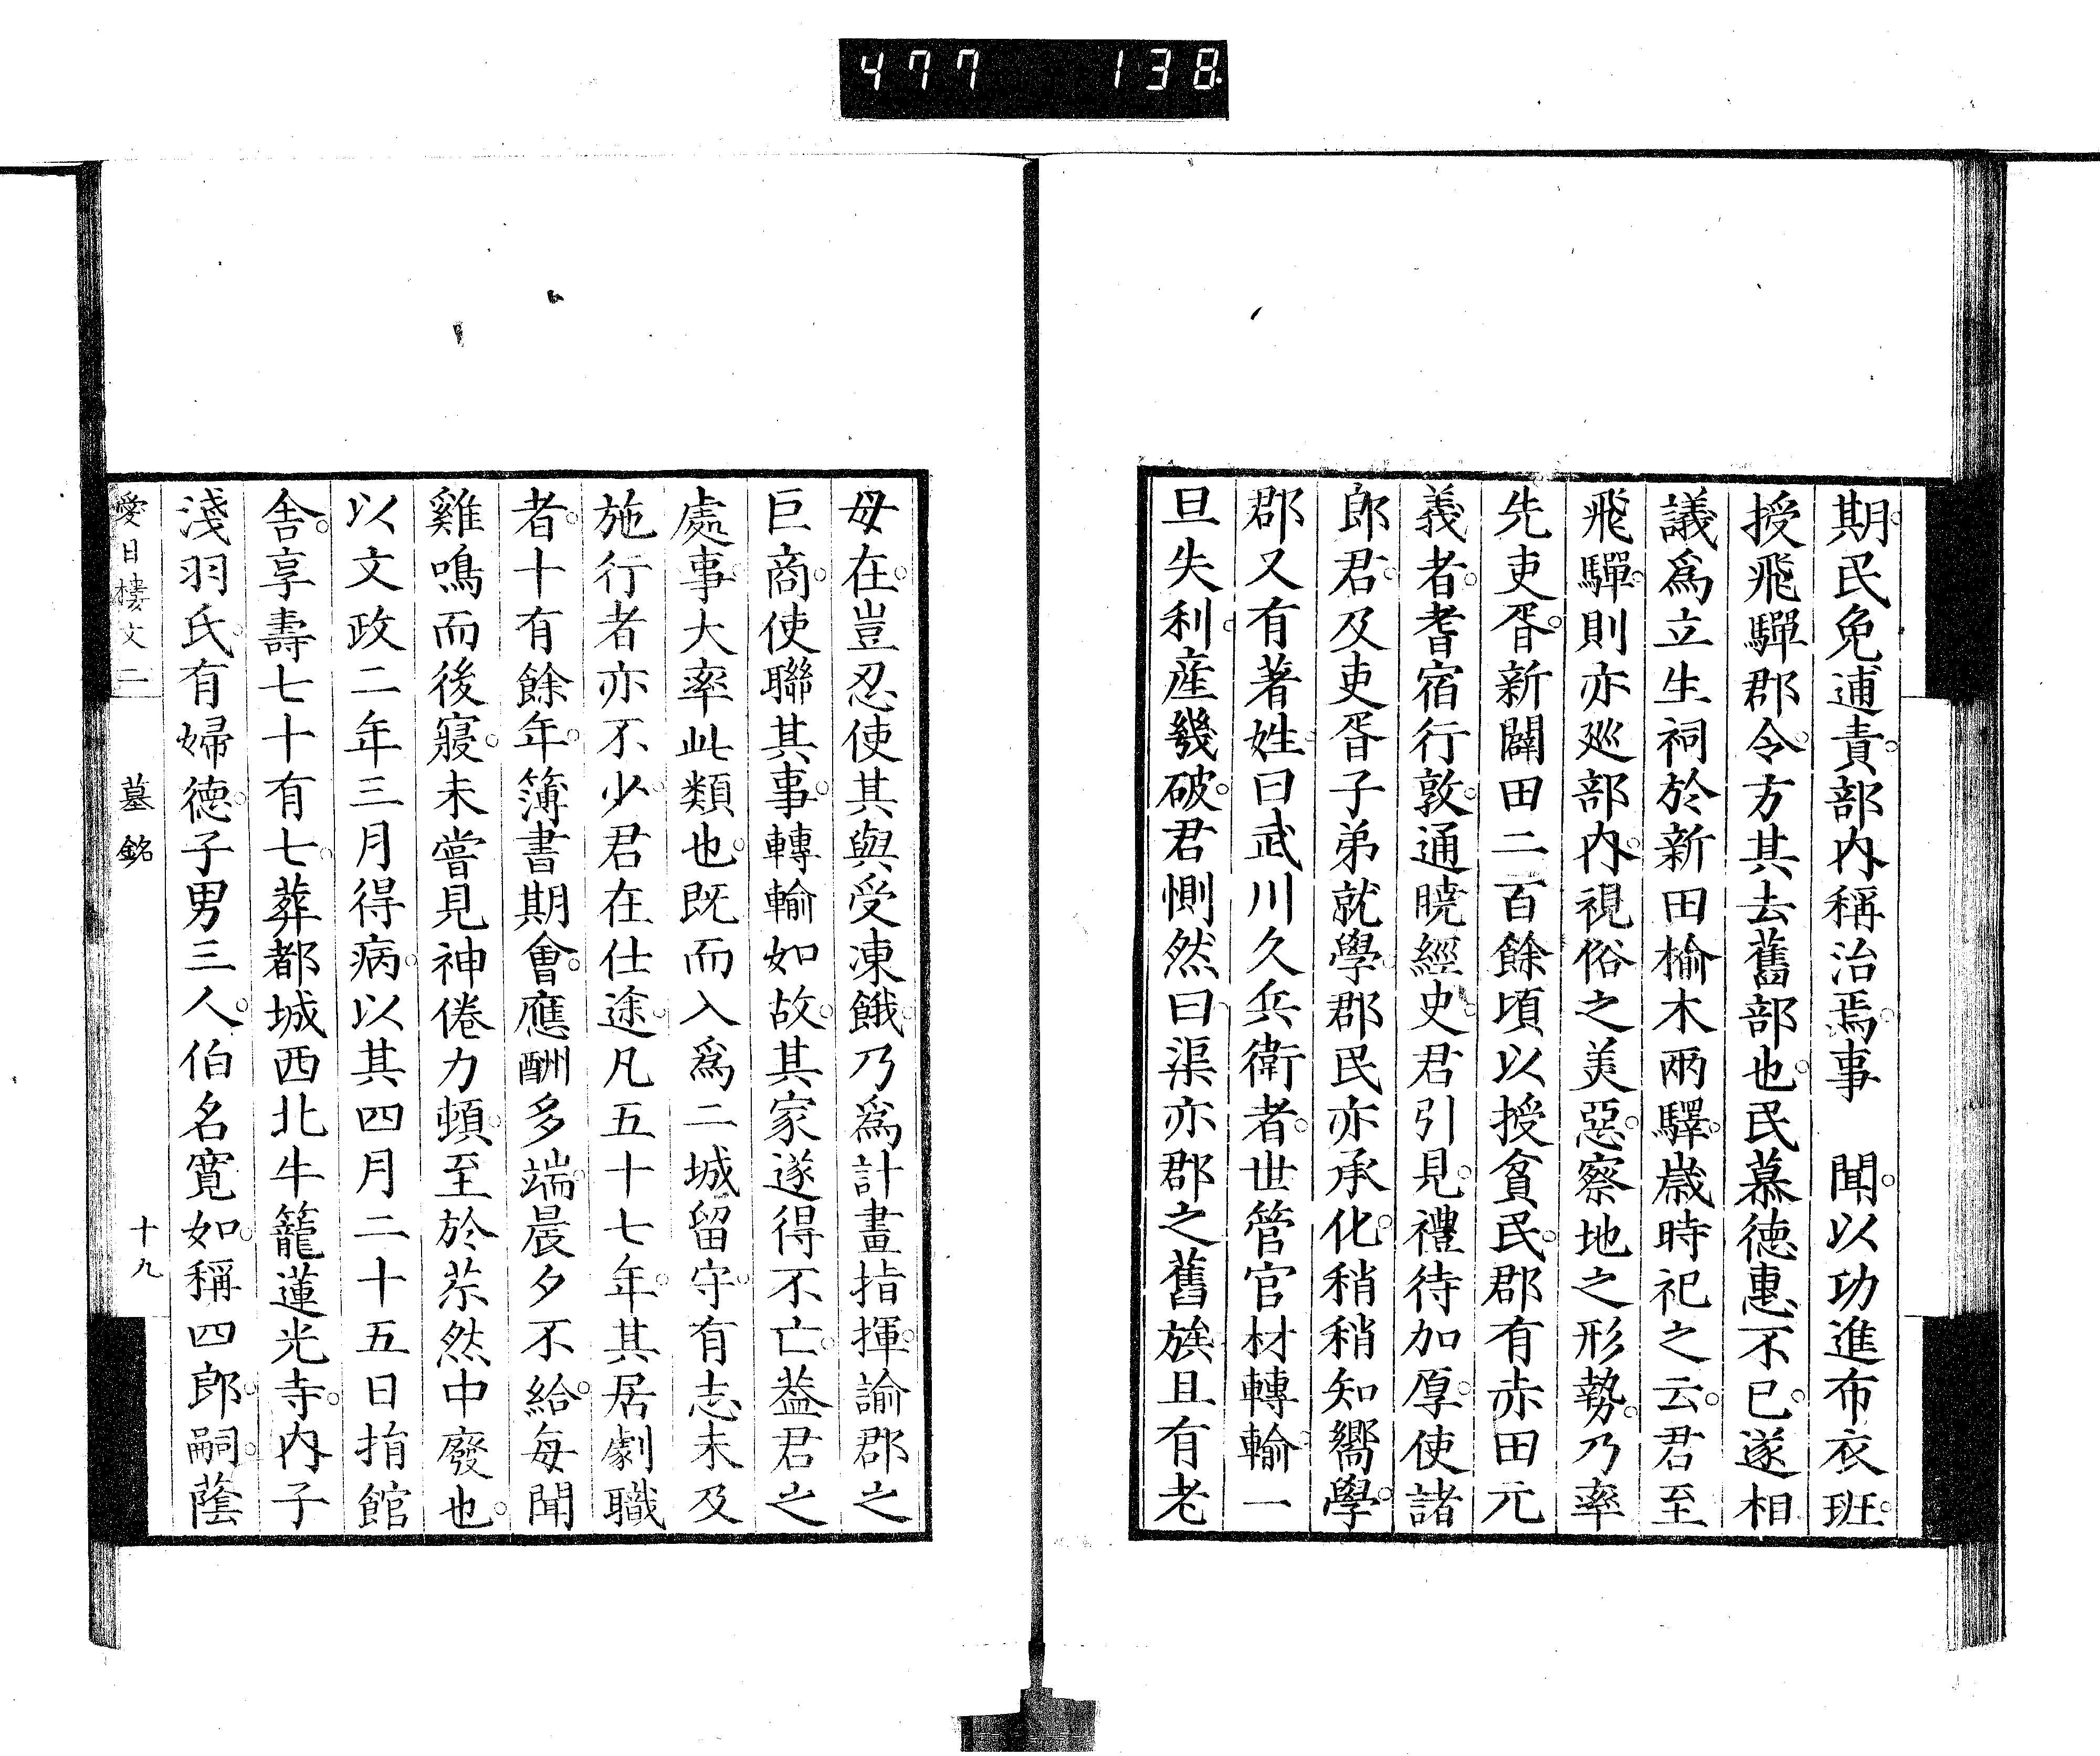 477 138
期。民免逋責。部内稱治焉。事　聞。以功進布衣班。
授飛驒郡令。方其去舊部也。民慕徳惠不已。遂相
議爲立生祠於新田楡木兩驛。歳時祀之云。君至
飛驒。則亦巡部内。視俗之美惡。察地之形勢。乃率
先吏胥。新闢田二百餘頃以授貧民。郡有赤田元
義者。耆宿行敦。通曉經史。君引見。禮待加厚。使諸
郎君。及吏胥子弟就學。郡民亦承化。稍稍知嚮學。
郡又有著姓。曰武川久兵衛者。世管官材轉輸。一
旦失利。産幾破。君惻然曰。渠亦郡之舊族。且有老
母在。豈忍使其與受凍餓。乃爲計畫指揮。諭郡之
巨商。使聯其事。轉輸如故。其家遂得不亡。葢君之
處事。大率此類也。既而入爲二城留守。有志未及
施行者亦不少。君在仕途。凡五十七年。其居劇職
者。十有餘年。簿書期會。應酬多端。晨夕不給。毎聞
雞鳴而後寢。未嘗見神倦力頓。至於苶然中廢也。
以文政二年三月得病。以其四月二十五日捐館
舎。享壽七十有七。葬都城西北牛籠蓮光寺。内子
淺羽氏。有婦徳。子男三人。伯名寛如。稱四郎。嗣。蔭
愛日樓文二　墓銘　十九